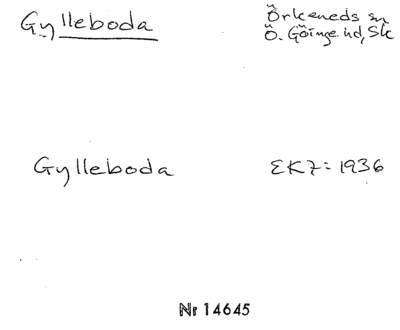 Gylleboda
Örkeneds sn
Ö. Göinge hd, Sk
Gylleboda
EK7: 1936
Nr 14645